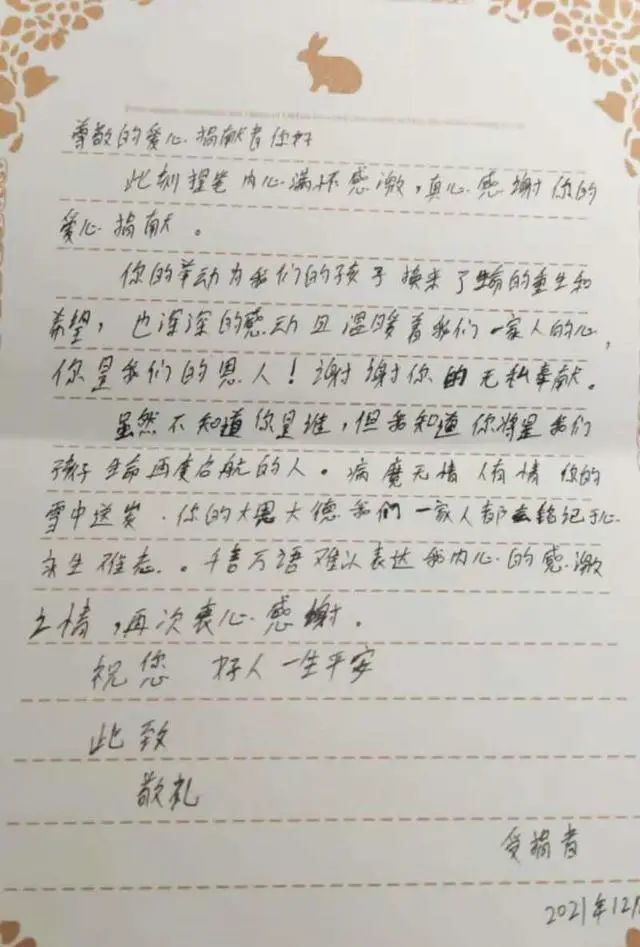 尊敬的爱心捐献者你好
此刻提笔内心满怀感激，真心感谢你的
爱心捐献。
你的举动为我们的孩子换来了生命的重生和
希望，也深深的感动且温暖着我们一家人的心，
你是我们的恩人！谢谢你的无私奉献。
虽然不知道你是谁，但我知道你将是我们
孩子生命再度启航的人。病魔无情人有情 你的
雪中送炭．你的大恩大德我们一家人都会铭记于心
永生难忘。千言万语难以表达我内心的感激
之情，再次衷心感谢。
祝您 好人一生平安
此致
敬礼
受捐者
2021年12